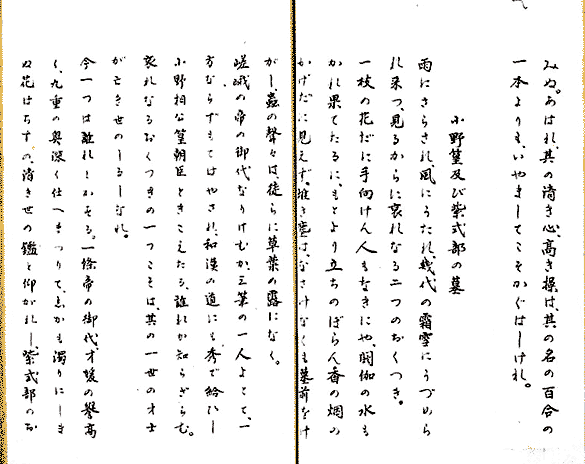 みぬ。あはれ、其の清き心、高き操は其の名の百合の
一本よりも、いやましてこそかぐはしけれ。
小野篁及び紫式部の墓
雨にさらされ、風にうたれ、幾代の霜雪にうづめら
れ来つ、見るからに哀れなる二つのおくつき。
一枝の花だに手向けん人もなきにや、閼伽の水も
かれ果てたるに、もとより立ちのぼらん香の烟の
かげだに見えず。堆き塵は、なさけなくも墓前をけ
がし、蟲の聲々は、徒らに草葉の露になく。
嵯峨の帝の御代なりけむか、三筆の一人よとて、一
方ならずもてはやされ、和漢の道にも秀で給ひし
小野相公篁朝臣ときこえたる、誰れか知らざらむ。
哀れなるおくつきの一つこそは、其の一世の才士
が亡き世のしるしなれ。
今一つは誰れとかする。一條帝の御代、才媛の譽高
く、九重の奥深く仕へまつりて、しかも濁りにしま
ぬ花はちすの、清き世の鑑と仰がれし、紫式部のお